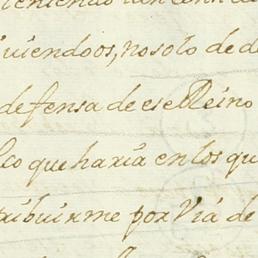 uiendoos, no solo de d
defensa de ese Reino
co que haria en los qu
tribuirme por Via de